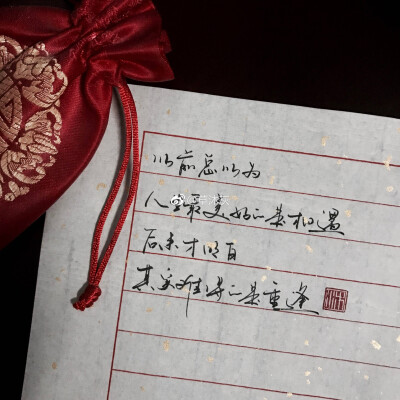 以前总以为
人生最美好的是相遇
后来才明白
其实难得的是重逢